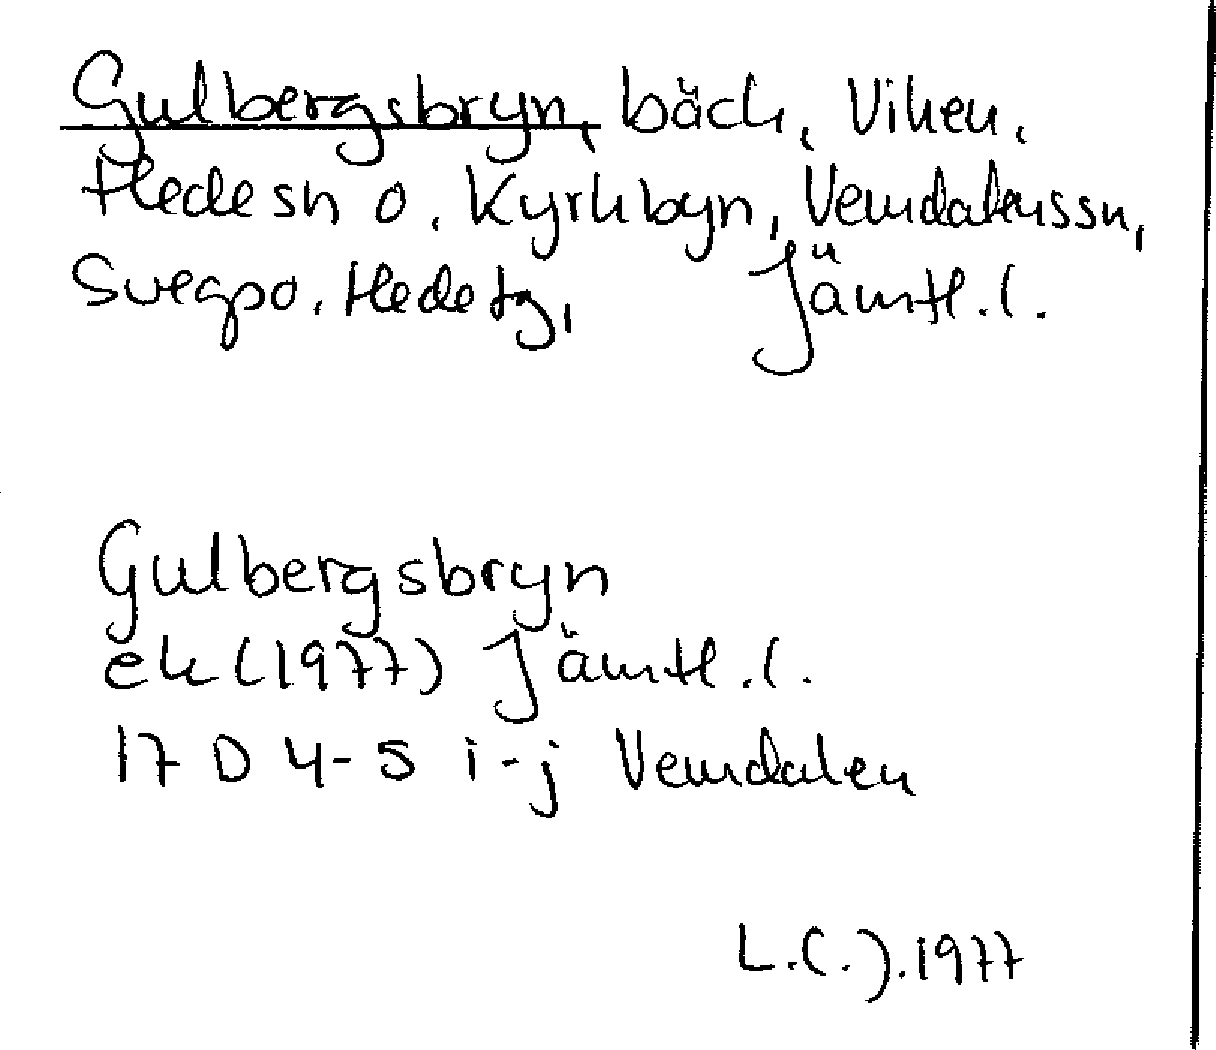 Gulbergsbryn, bäck, Viken,
Hede sn o. Kyrkbyn, Vemdalens sn,
Svegpo, Hede tg, Jämtl. l.
Gulbergsbryn
ek (1977) Jämtl. l.
17 D 4-5 i-j Vemdalen
1977